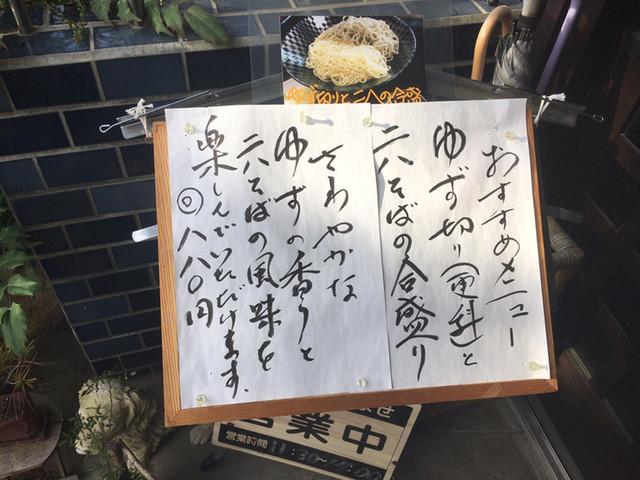 ゆず切りと二八の合盛
おすすめメニュー
ゆず切り(更科)と
二八そばの合盛り
さわやかな
ゆずの香りと
二八そばの風味を
楽しんでいただけます。
◎八八〇円
営業中
営業時間
11:30~14:00